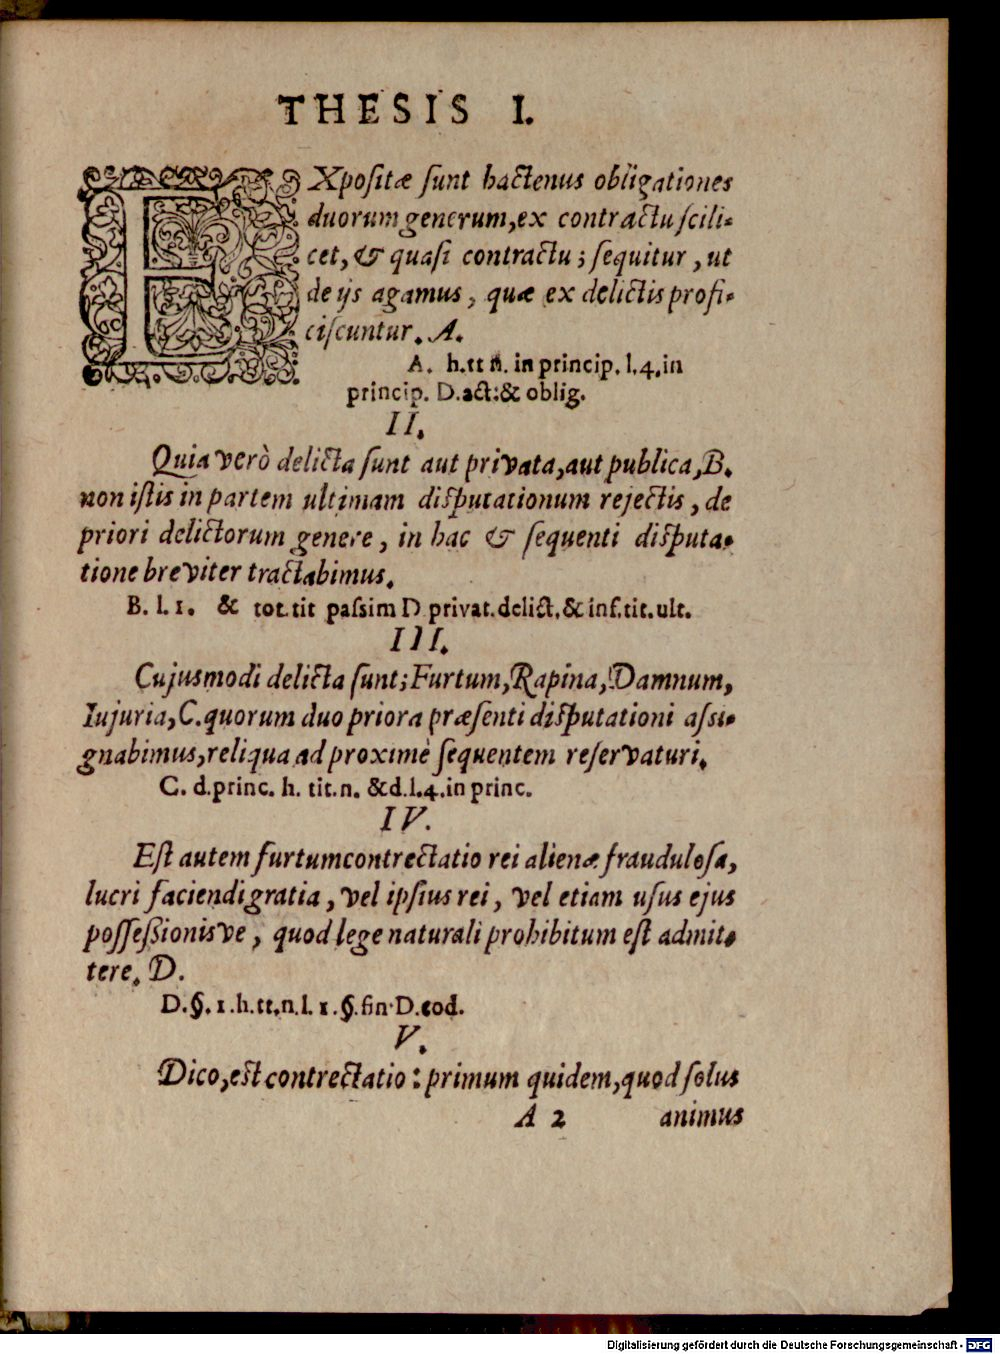 THESIS I.
EXpositæ sunt hactenus obligationes
duorum generum, ex contractu scili-
cet, & quasi contractu; sequitur, ut
de ijs agamus, quæ ex delictis profi-
ciscuntur. A.
A. h. tt n. in princip. l. 4. in
princip. D. act: & oblig.
II.
Quia verò delicta sunt aut privata, aut publica, B.
non istis in partem ultimam disputationum rejectis, de
priori delictorum genere, in hac & sequenti disputa-
tione breviter tractabimus.
B. l. 1. & tot. tit passim D privat. delict. & inf. tit. ult.
III.
Cujusmodi delicta sunt; Furtum, Rapina, Damnum,
Iujuria, C. quorum duo priora præsenti disputationi assi-
gnabimus, reliqua ad proximè sequentem reservaturi.
C. d. princ. h. tit. n. & d. l. 4. in princ.
IV.
Est autem furtum contrectatio rei alienæ fraudulosa,
lucri faciendi gratia, vel ipsius rei, vel etiam usus ejus
possessionisve, quod lege naturali prohibitum est admit-
tere. D.
D. §. 1. h. tt. n. l. 1. §. fin. D. eod.
V.
Dico, est contrectatio: primum quidem, quod solus
A 2 animus
Digitalisierung gefördert durch die Deutsche Forschungsgemeinschaft - DFG